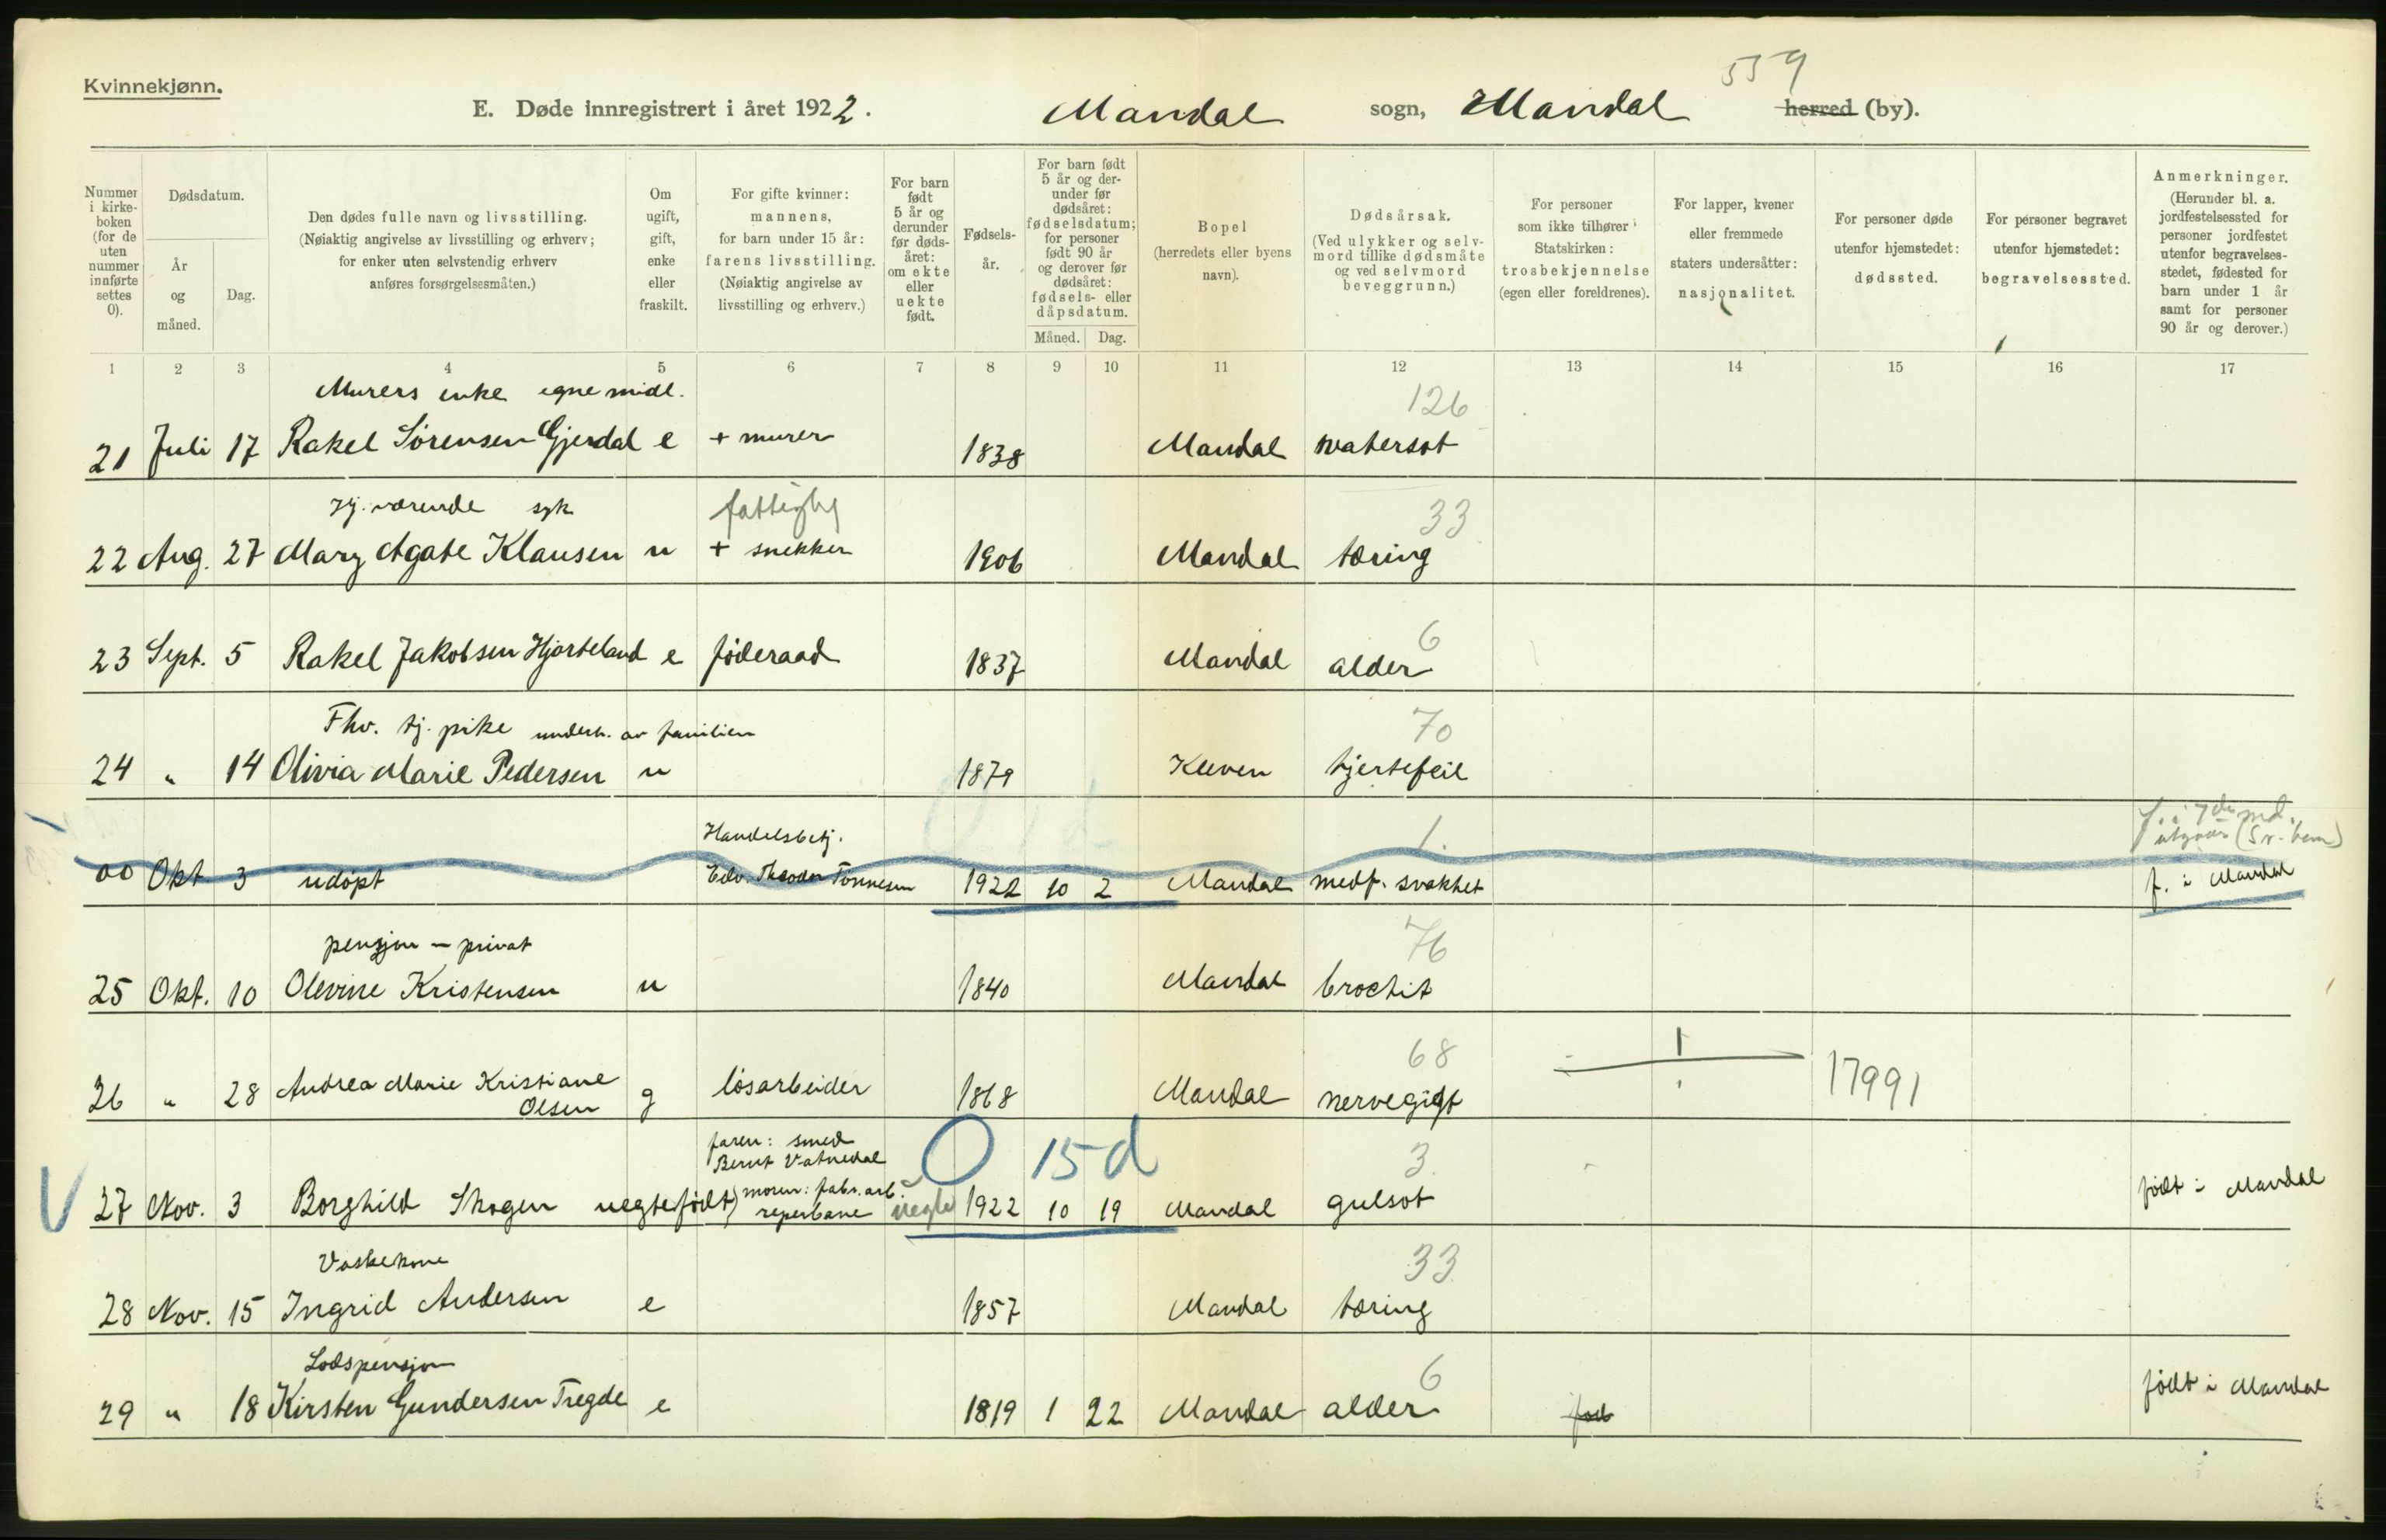 559
Kvinnekjønn.
E. Døde innregistrert i året 1922. Mandal sogn, Mandal herred (by).
Nummer i kirke-boken (for de uten nummer innførte settes 0).
Dødsdatum.
År og måned.
Dag.
Den dødes fulle navn og livsstilling.
(Nøiaktig angivelse av livsstilling og erhverv;
for enker uten selvstendig erhverv
anføres forsørgelsesmåten.)
Om ugift, gift, enke eller fraskilt.
For gifte kvinner:
mannens,
for barn under 15 år:
farens livsstilling.
(Nøiaktig angivelse av
livsstilling og erhverv.)
For barn født 5 år og derunder før døds-året: om ekte eller uekte født.
Fødsels-år.
For barn født 5 år og der-under før dødsåret: fødselsdatum; for personer født 90 år og derover før dødsåret: fødsels- eller dåpsdatum.
Måned. Dag.
Bopel
(herredets eller byens
navn).
Dødsårsak.
(Ved ulykker og selv-
mord tillike dødsmåte
og ved selvmord
beveggrunn.)
For personer
som ikke tilhører
Statskirken:
trosbekjennelse
(egen eller foreldrenes).
For lapper, kvener
eller fremmede
staters undersåtter:
nasjonalitet.
For personer døde
utenfor hjemstedet:
dødssted.
For personer begravet
utenfor hjemstedet:
begravelsessted.
Anmerkninger.
(Herunder bl. a.
jordfestelsessted for
personer jordfestet
utenfor begravelses-
stedet, fødested for
barn under 1 år
samt for personer
90 år og derover.)
1 2 3 4 5 6 7 8 9 10 11 12 13 14 15 16 17
Murers enke egne midl. 126
21 Juli 17 Rakel Sörensen Gjerdal e + murer 1838 Mandal vatersot
Hj. værende syk fattigby 33
22 Aug. 27 Mary Agate Klausen u + snekker 1906 Mandal tæring
6
23 Sept. 5 Rakel Jakobsen Hjorteland e föderaad 1837 Mandal alder
Fhv. tj. pike underh. av familien 70
24 " 14 Olivia Marie Pedersen u 1879 Kleven hjertefeil
Handelsbetj. 1.
00 Okt. 3 udöpt Edv. Theodor Tönnesen 1922 10 2 Mandal medf. svakhet f. i Mandal
pensjon - privat 76
25 Okt. 10 Olevine Kristensen u 1840 Mandal brochit
68
26 " 28 Andrea Marie Kristiane Olsen g lösarbeider 1868 Mandal nervegigt 17991
faren: smed
Bernt Vatnedal 0 15 d 3.
V 27 Nov. 3 Borghild Skogen uegtefödt) moren: fabr. arb. reperbane uegte 1922 10 19 Mandal gulsot födt i Mandal
Vaskekone 33
28 Nov. 15 Ingrid Andersen e 1857 Mandal tæring
Lodspensjon 6
29 " 18 Kirsten Gundersen Tregde e 1819 1 22 Mandal alder födt i Mandal